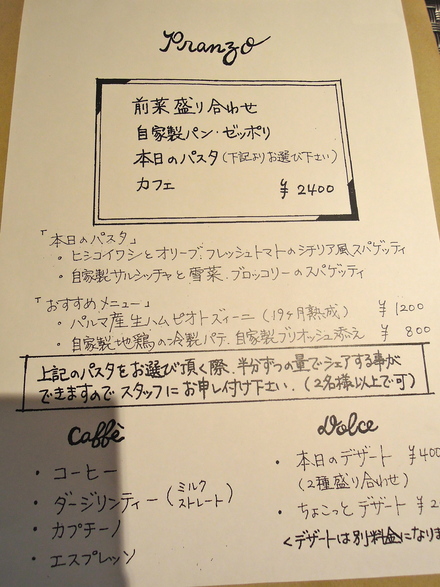 Pranzo
前菜盛り合わせ
自家製パン・ゼッポリ
本日のパスタ(下記よりお選び下さい)
カフェ ¥2400
「本日のパスタ」
・ヒシコイワシとオリーブ、フレッシュトマトのシチリア風スパゲッティ
・自家製サルシッチャと雪菜、ブロッコリーのスパゲッティ
「おすすめメニュー」
・パルマ産生ハム ピオトズィーニ(19ヶ月熟成) ¥1200
・自家製地鶏の冷製パテ、自家製ブリオッシュ添え ¥800
上記のパスタをお選び頂く際、半分ずつの量でシェアする事が
できますので スタッフにお申し付け下さい。(2名様以上で可)
Caffè
・コーヒー
・ダージリンティー(ミルク
ストレート)
・カプチーノ
・エスプレッソ
Dolce
・本日のデザート ¥400
(2種盛り合わせ)
・ちょこっとデザート ¥2
<デザートは別料金になりま